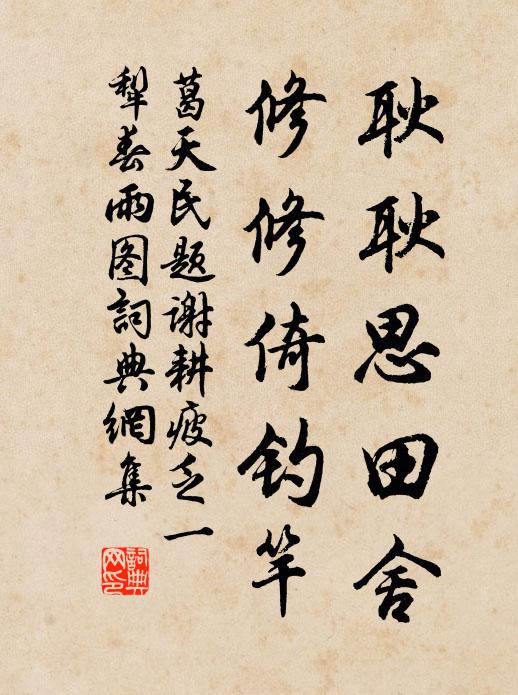 耿耿思田舍
修修倚钓竿
葛天民题谢耕疲乏一
犁春雨图詞典網集
詞典
网印